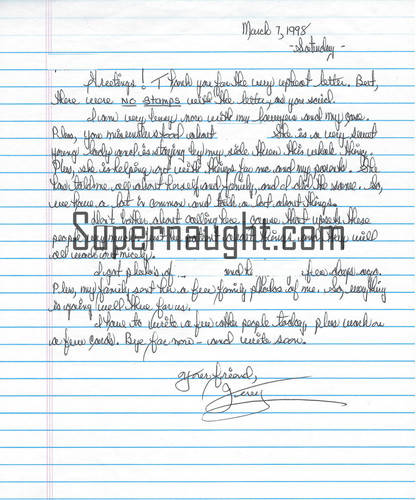 March 7, 1998
- Saturday -
Greetings! Thank you for the very upbeat letter. But,
there were NO STAMPS with the letter, as you said.
I am very busy now with my lawyers and my case.
Plus, you misunderstood about She is a very smart
young lady and is staying by my side thru this whole thing.
Plus, she is helping out with things for me and my parents. She
has told me all about herself and family, and I did the same. So,
we have a lot in common and talk a lot about things.
Don't bother about calling here, cause that upsets these
people very much will
all work out nicely.
I got photos of and to few days ago.
Plus, my family sent her a few family photos of me. So, everything
is going well there for us.
I have to write a few other people today, plus work on
a few cards. Bye for now - and write soon.
Your friend,
Supernaught.com